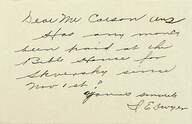 Dear Mr Carson
Has any money
been paid at the
Bible House for
Skovensky since
Nov 1st?
Yours sincerely